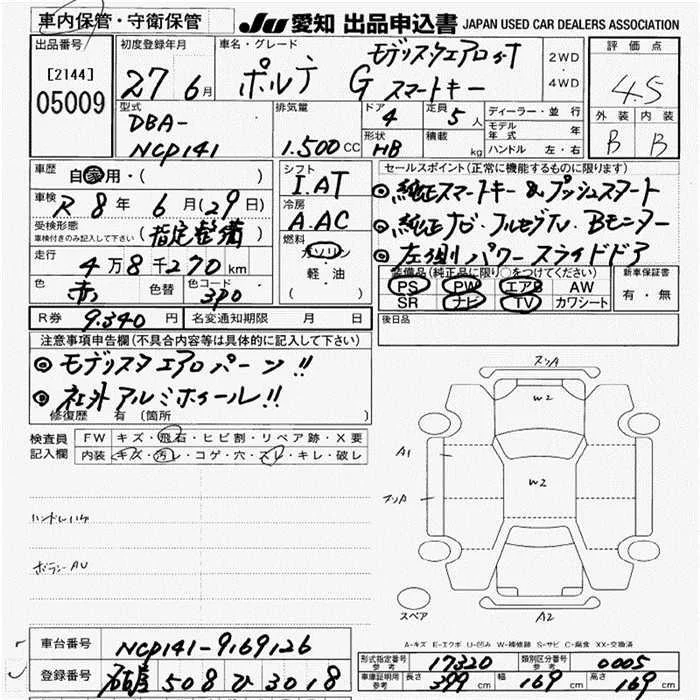 車内保管・守衛保管
JU 愛知 出品申込書 JAPAN USED CAR DEALERS ASSOCIATION
出品番号
[2144]
05009
初度登録年月
27 6月
車名・グレード
ポルテ G スマートキー
モデリスタエアロ付
2WD
・
4WD
評価点
4.5
外装 内装
B B
型式
DBA-
NCP141
排気量
1.500 CC
ドア
4
定員
5人
形状
HB
積載
kg
ディーラー・並行
モデル年式 年
ハンドル 左・右
車歴
自家用・( )
車検
R 8年 6月(29日)
受検形態
車検付きのみ記入して下さい
(指定整備)
走行
4万8千270km
色
赤
色替
色コード
3P0
シフト
I.AT
冷房
A.AC
燃料
ガソリン
軽・油
( )
セールスポイント(正常に機能するものに限ります)
◎純正スマートキー&プッシュスタート
◎純正ナビ・フルセグTV・Bモニター
◎左側パワースライドドア
装備品(純正品に限り○をつけてください)
PS PW エアB AW
SR ナビ TV カワシート
新車保証書
有・無
R券 9.340円 名変通知期限 月 日
後日品
注意事項申告欄(不具合内容等は具体的に記入して下さい)
◎モデリスタエアロバージョン!!
◎社外アルミホイール!!
修復歴 有(箇所
検査員
記入欄
FW キズ・飛石・ヒビ割・リペア跡・X要
内装 キズ・汚レ・コゲ・穴・スレ・キレ・破レ
スリA
W2
A1
W2
スリA
スペア
A2
A-キズ E-エクボ U-凹み W-補修跡 S-サビ C-腐食 XX-交換済
車台番号 NCP141-9169126
登録番号 508 ひ 3018
形式指定番号
参考
17320
類別区分番号
参考
0005
車庫証明用
参考
長さ 399cm 幅 169cm 高さ 169cm